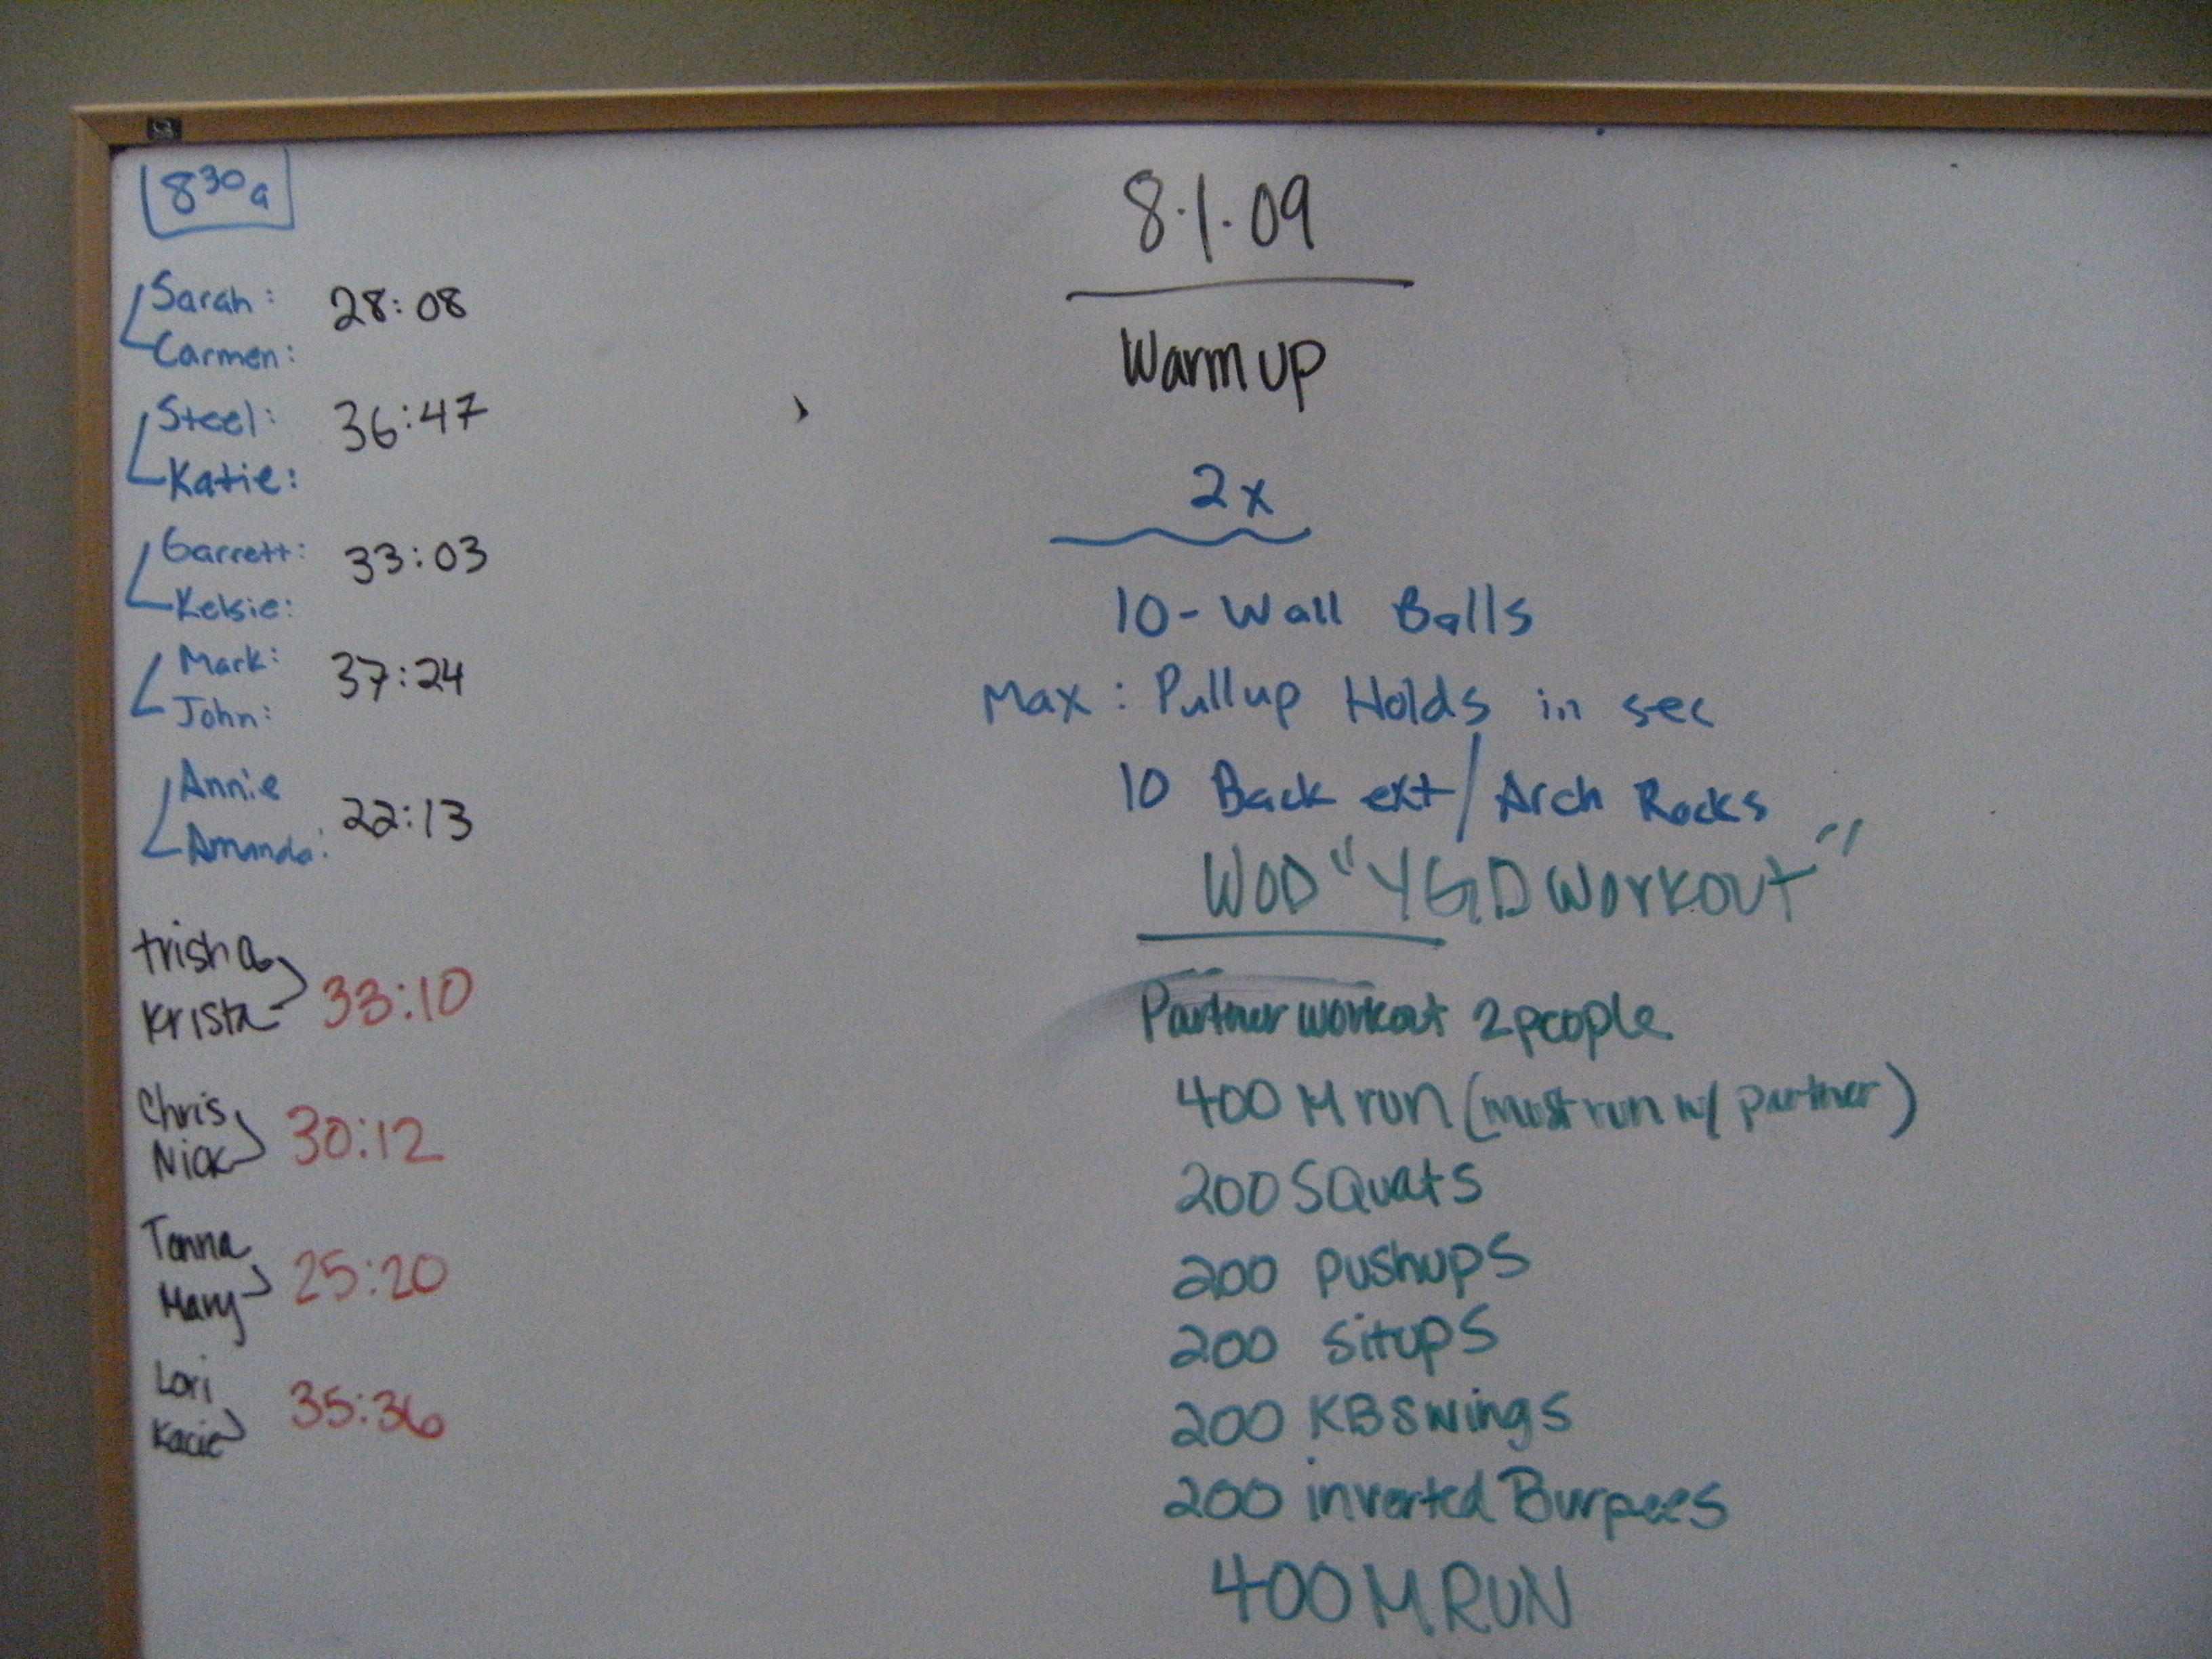 8³⁰a
Sarah: 28:08
Carmen:
Steel: 36:47
Katie:
Garrett: 33:03
Kelsie:
Mark: 37:24
John:
Annie 22:13
Amanda:
trisha 33:10
Krista
Chris 30:12
Nick
Tanna 25:20
Mary
Lori 35:36
Kacie
8.1.09
Warm up
2x
10-Wall Balls
Max: Pullup Holds in sec
10 Back ext/Arch Rocks
WOD "YGD Workout"
Partner workout 2 people
400 M run (must run w/ partner)
200 SQuats
200 pushups
200 situps
200 KB swings
200 inverted Burpees
400 M RUN